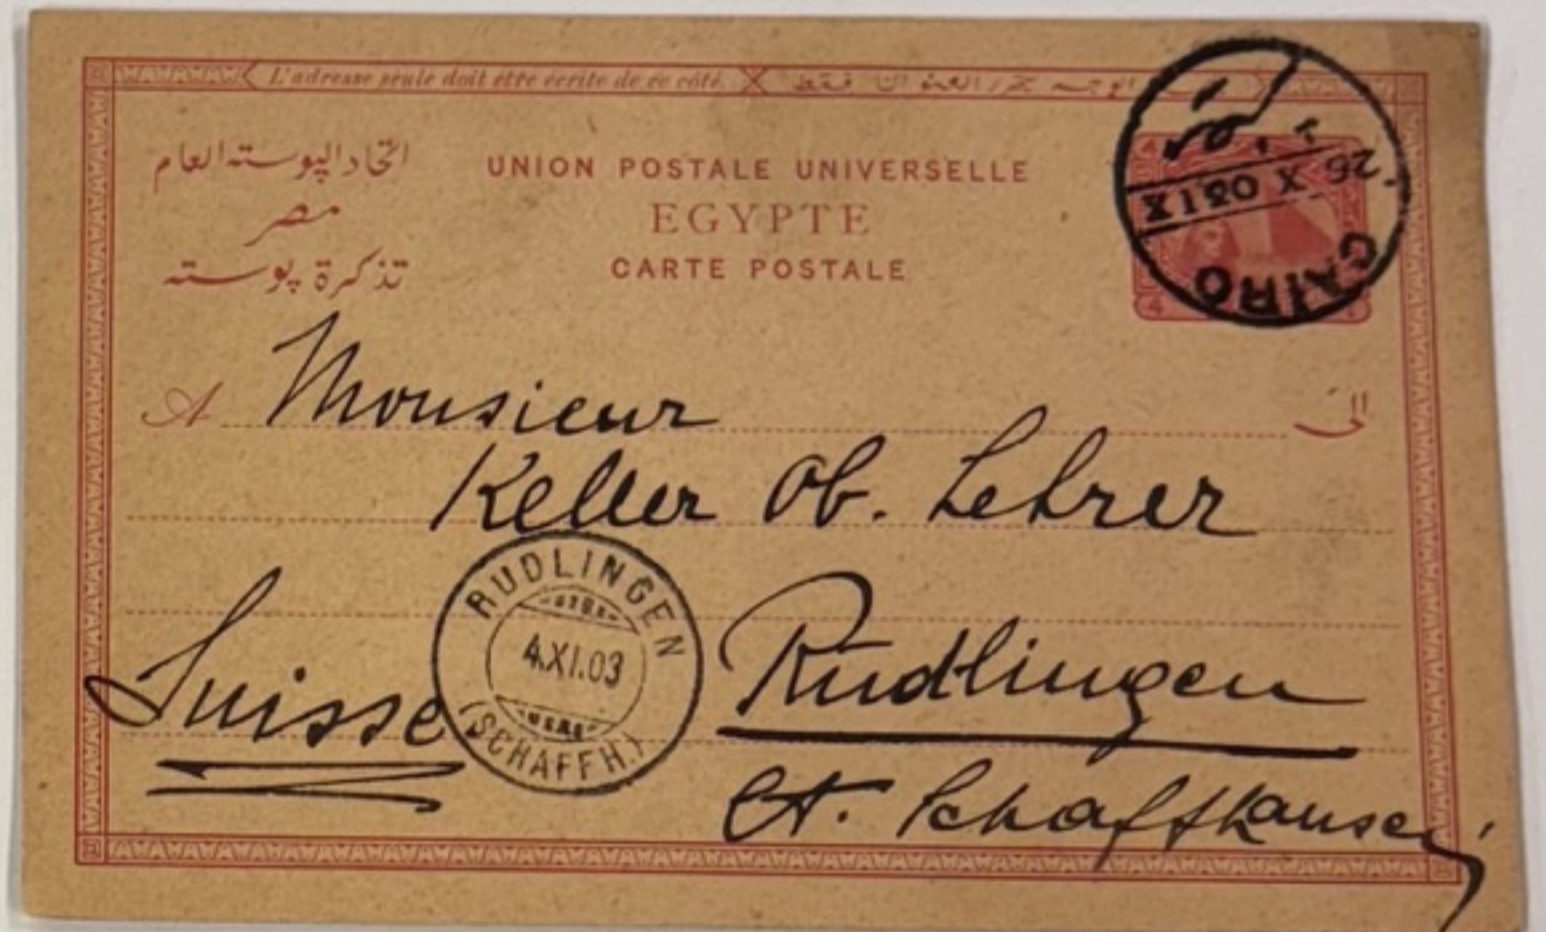 L'adresse seule doit être écrite de ce côté.
اتحاد البوسته العام
مصر
تذكرة بوسته
UNION POSTALE UNIVERSELLE
EGYPTE
CARTE POSTALE
CAIRO
26 X 03
4
4
A
الى
Monsieur
Keller Ob. Lehrer
Rüdlingen
Ct. Schaffhausen
Suisse
RUDLINGEN
4.XI.03
(SCHAFFH.)